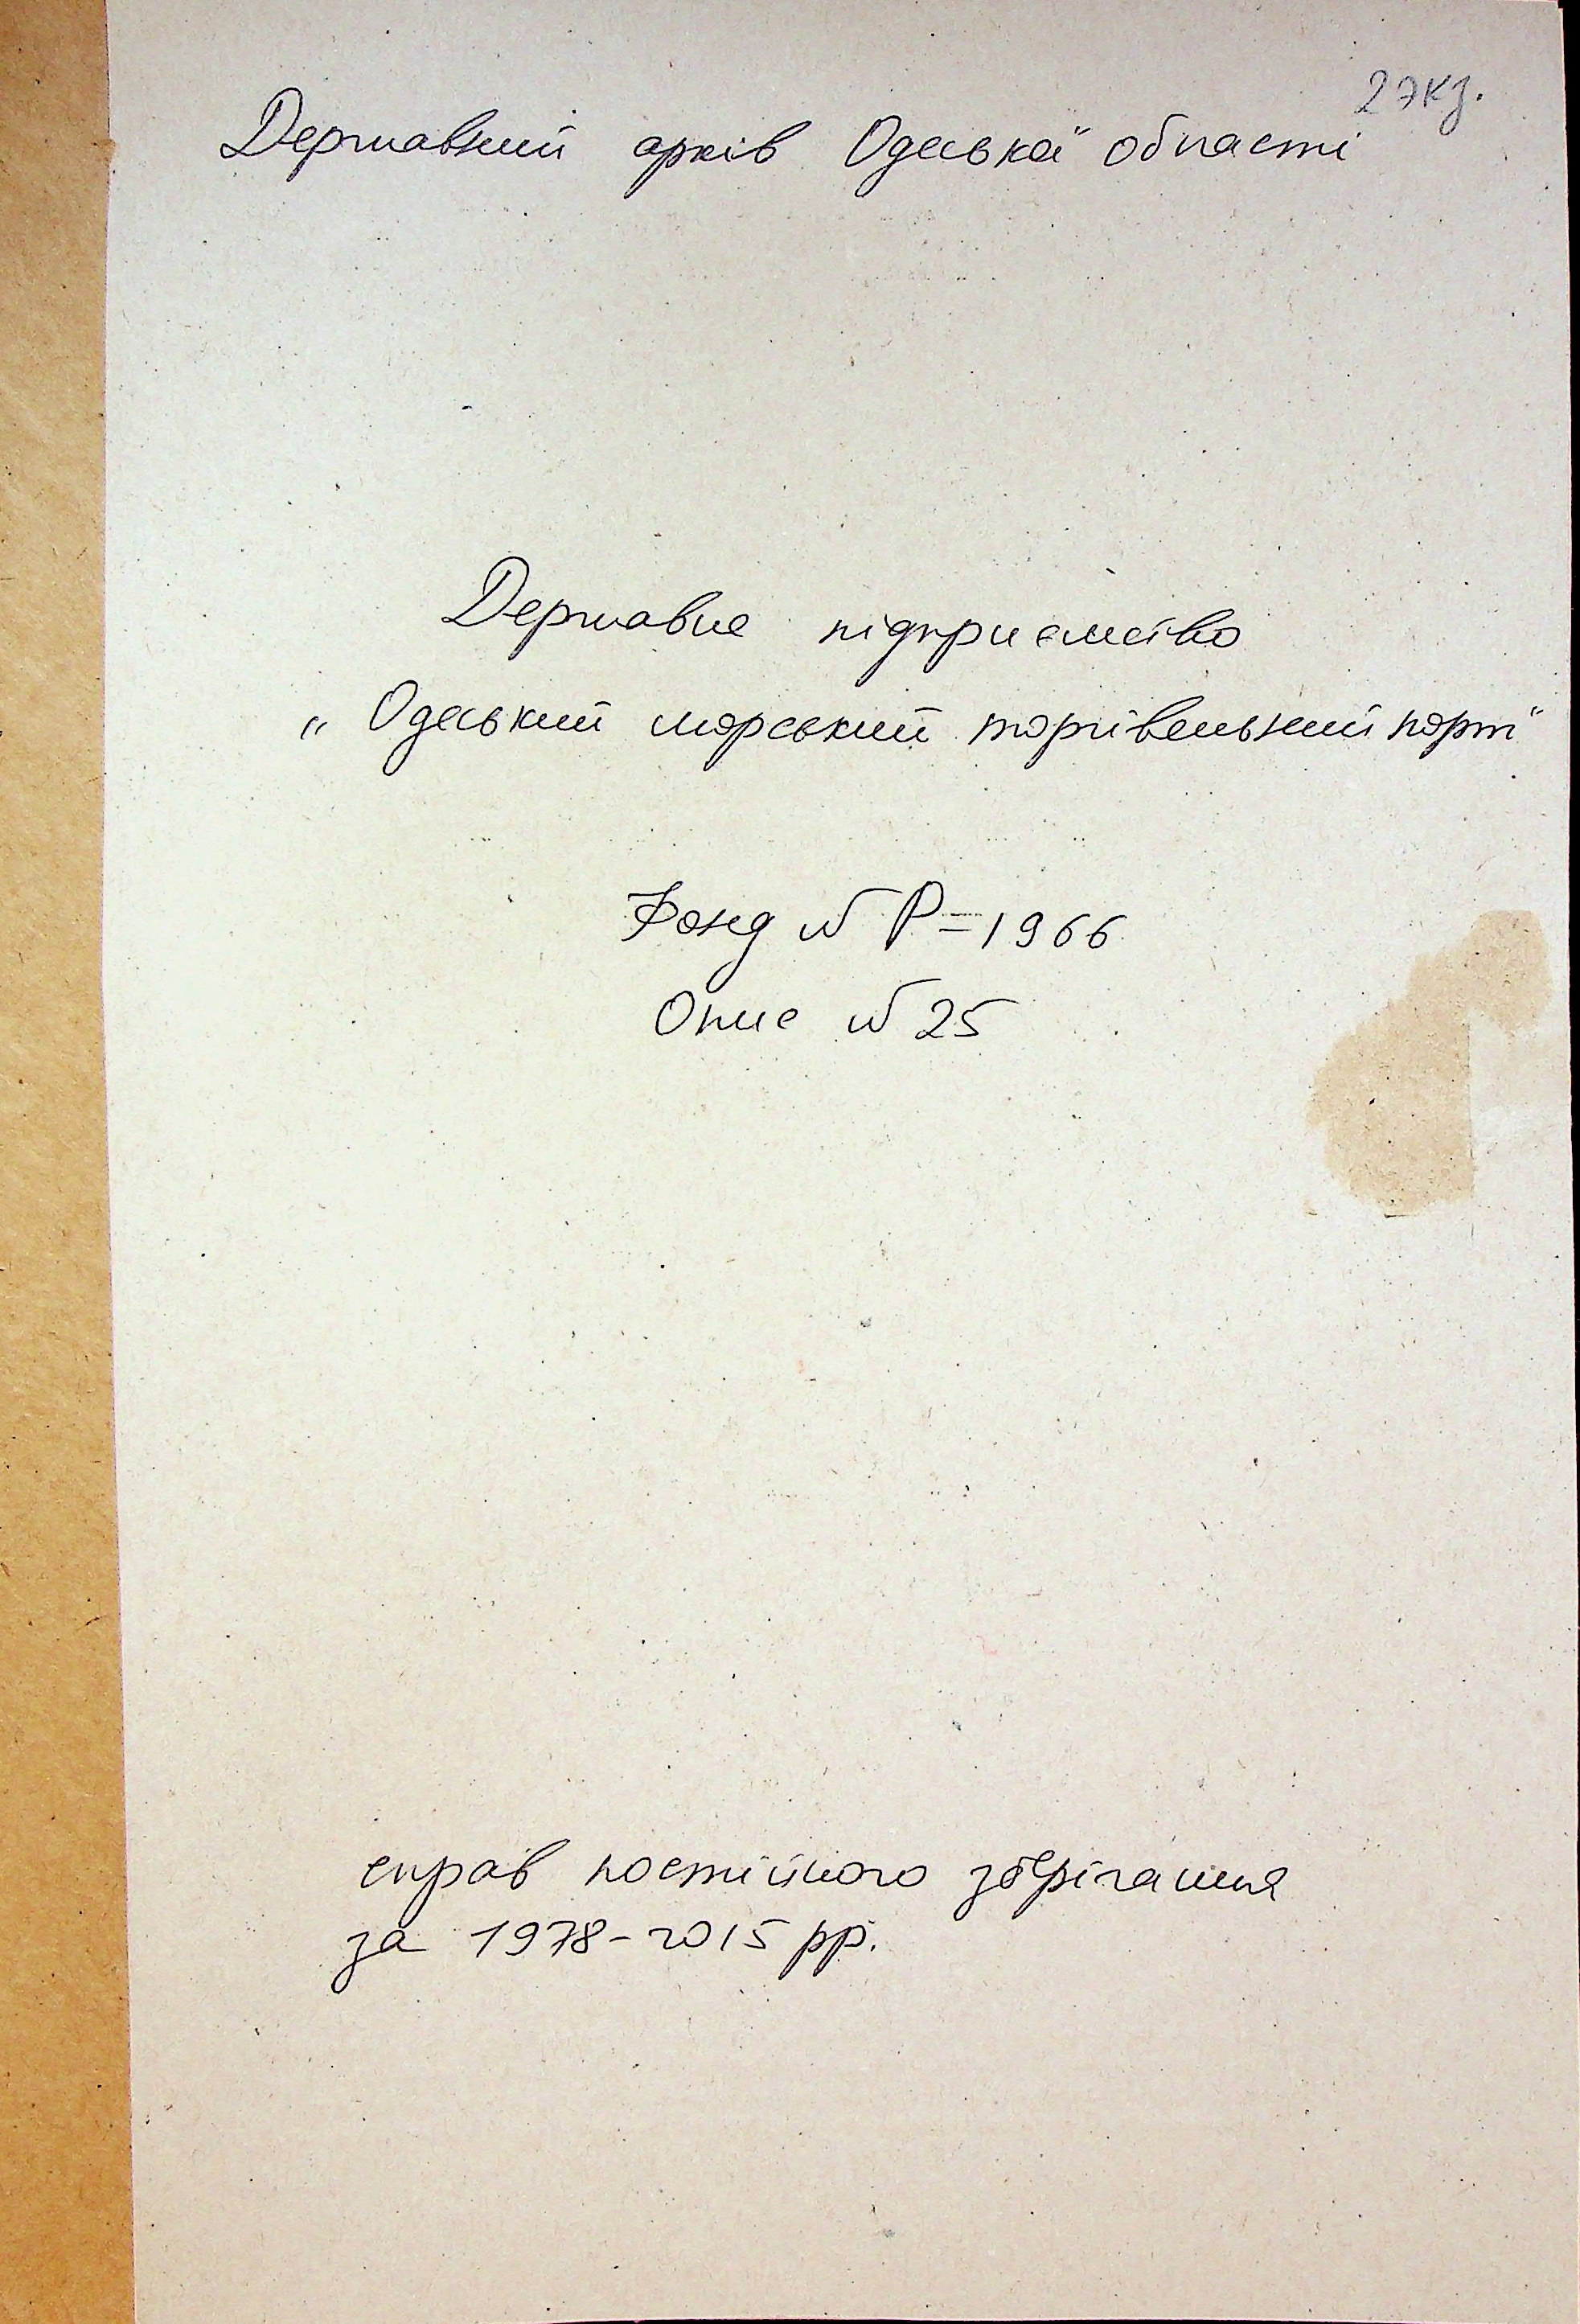 2 экз.
Державний архів Одеської області
Державне підприємство
„Одеський морський торгівельний порт"
Фонд № Р-1966
Опис № 25
справ постійного зберігання
за 1978-2015 рр.